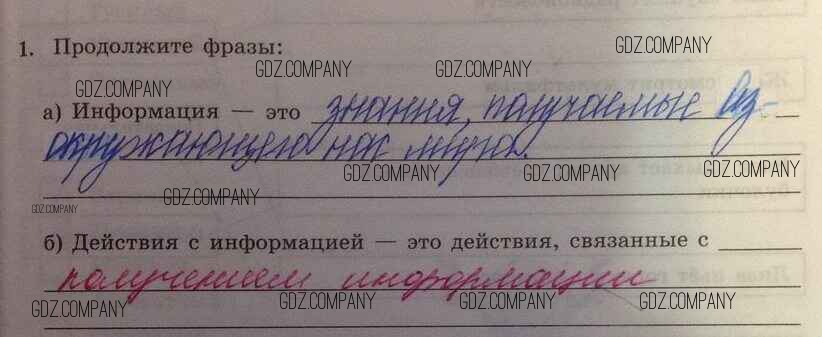 1. Продолжите фразы:
GDZ.COMPANY
GDZ.COMPANY GDZ.COMPANY
GDZ.COMPANY
а) Информация — это знания, получаемые из
GDZ.COMPANY GDZ.COMPANY GDZ.COMPANY GDZ.COMPANY
окружающего нас мира.
GDZ.COMPANY GDZ.COMPANY GDZ.COMPANY
GDZ.COMPANY GDZ.COMPANY
б) Действия с информацией — это действия, связанные с
GDZ.COMPANY
получением информации
GDZ.COMPANY GDZ.COMPANY GDZ.COMPANY GDZ.COMPANY